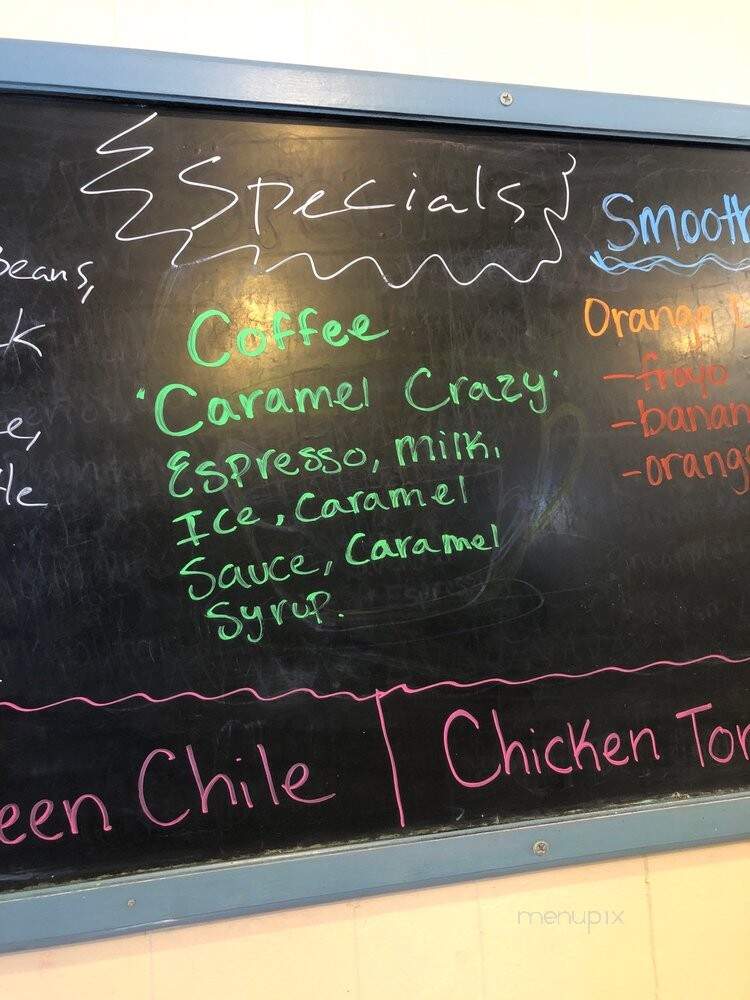 Specials
Beans,
Coffee
"Caramel Crazy"
Espresso, Milk,
Ice, Caramel
Sauce, Caramel
Syrup.
Smooth
Orange
- froyo
- banan
- orang
een Chile
Chicken Tor
menupix